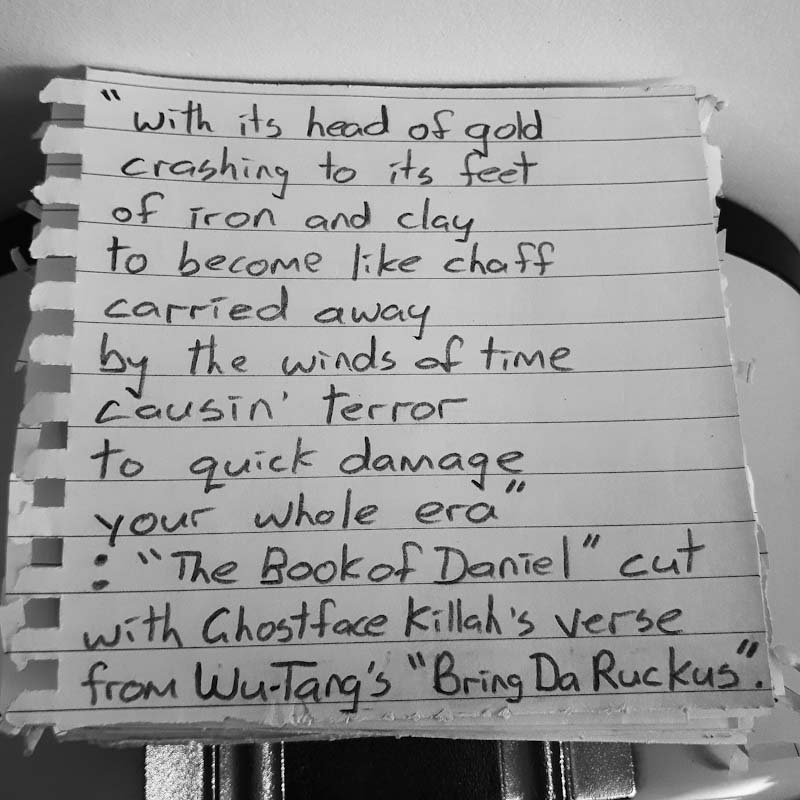 "with its head of gold
crashing to its feet
of iron and clay
to become like chaff
carried away
by the winds of time
causin' terror
to quick damage
your whole era"
: "The Book of Daniel" cut
with Ghostface Killah's verse
from Wu-Tang's "Bring Da Ruckus".